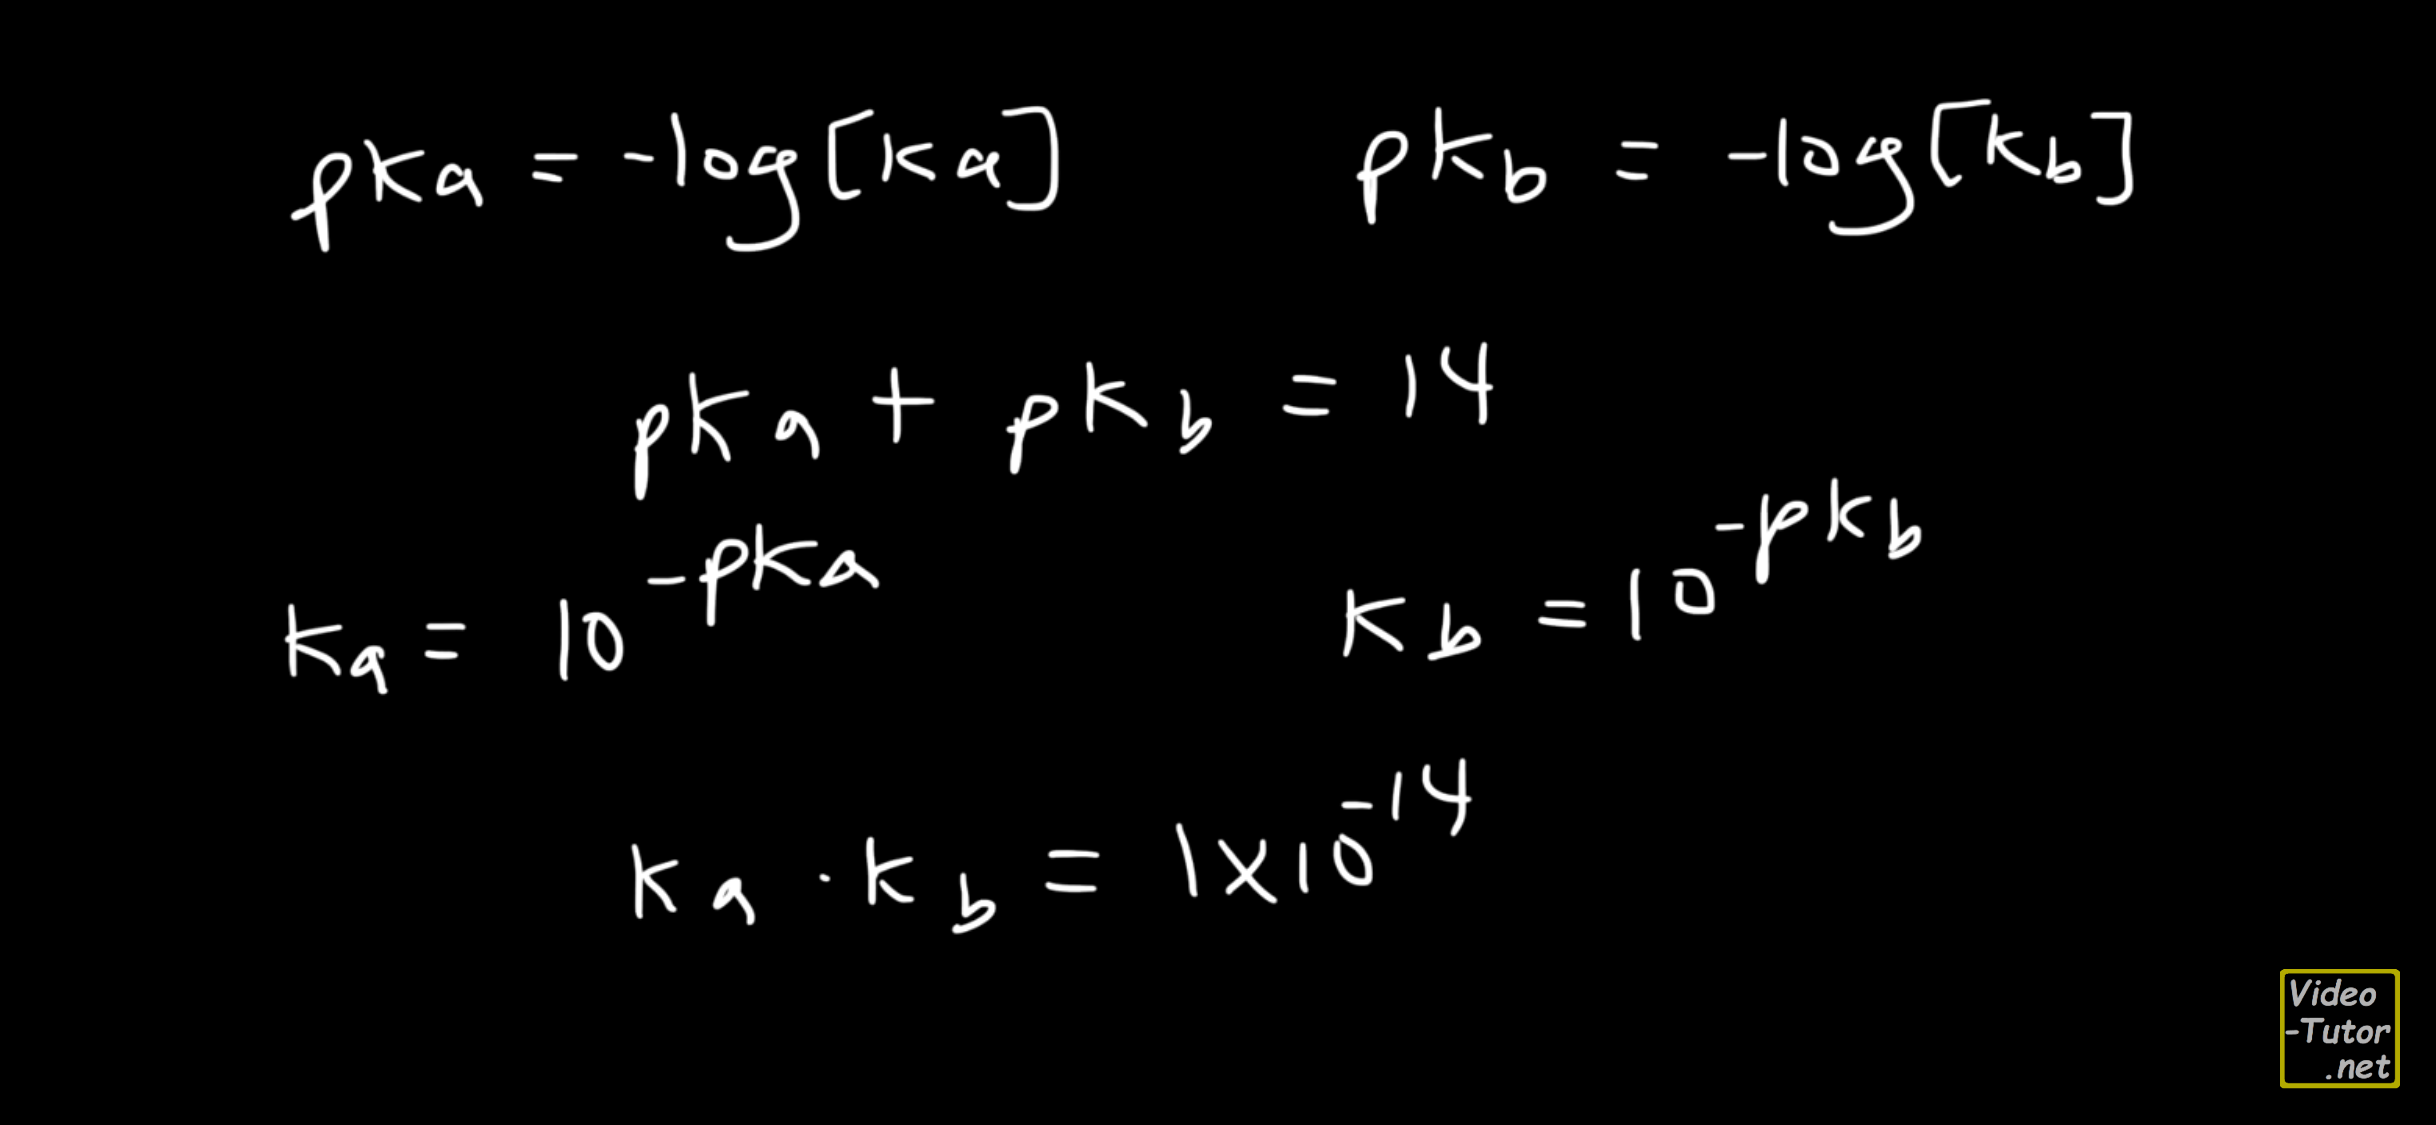 pKa = -log[Ka]    pKb = -log[Kb]
pKa + pKb = 14
Ka = 10^-pKa    Kb = 10^-pKb
Ka · Kb = 1x10^-14
Video
-Tutor
.net